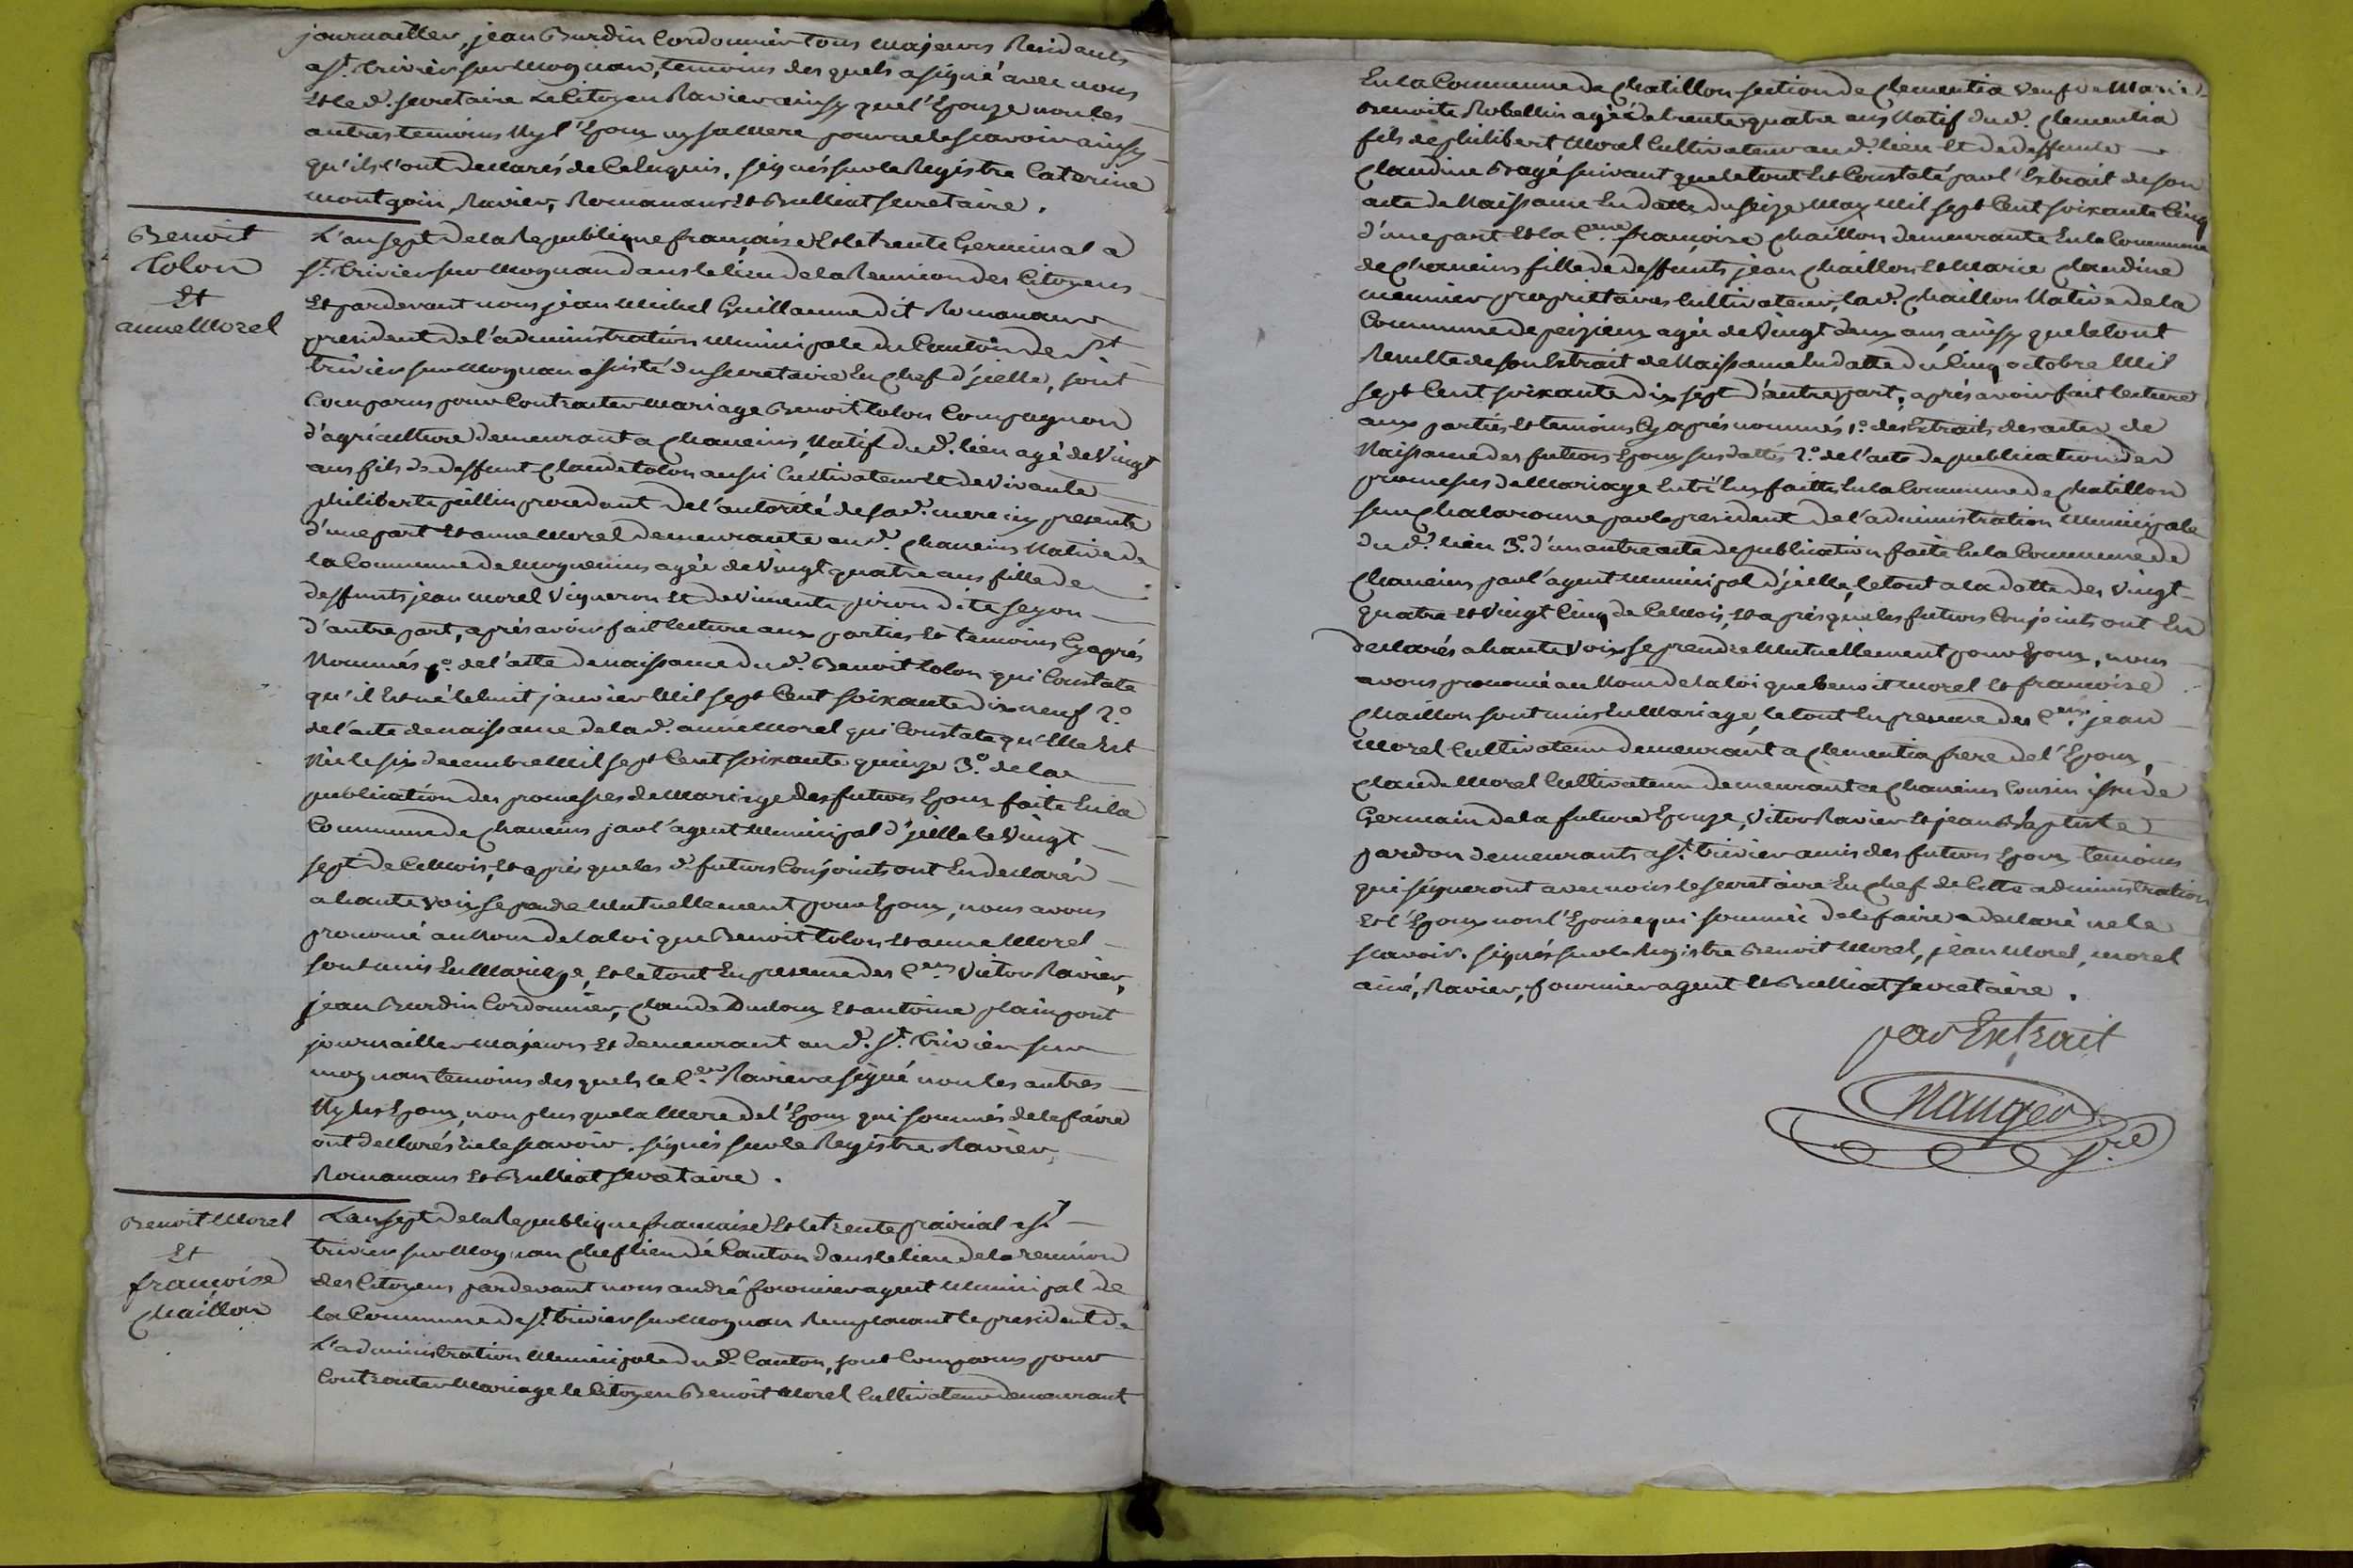 journailler, jean Burdin Cordonnier tous Majeurs Residants
a St. trivier sur Moignan, temoins des quels a signé avec nous
Et le d. secretaire Le Citoyen Ravier ainsy que l'Epouze non les
autres temoins Ny l'Epoux ny sa Mere pour ne le scavoir ainsy
qu'ils l'ont declarés de Ce Enquis. signés sur le Registre Catarine
montgoin, Ravier, Romanans Et Bulliat secretaire.
Benoit
Colon
Et
anne Morel
L'an sept de la Republique française Et le trente Germinal a
St. trivier sur Moignan dans le lieu de la Reunion des Citoyens
Et pardevant nous jean Michel Guillaume dit Romanans
president de l'administration Municipale du Canton de St
trivier sur Moignan assisté du secretaire En Chef d'jcelle, sont
Comparus pour Contracter Mariage Benoit Colon Compagnon
d'agriculture demeurant a Chaneins, Natif du d. lieu agé de Vingt
ans fils de deffunt Claude Colon aussi Cultivateur Et de Vivante
philiberte jullin procedant de l'autorité de sa d. mere icy presente
d'une part Et anne Morel demeurante au d. Chaneins Native de
la Commune de Mogneneins agée de Vingt quatre ans fille de
deffunts jean Morel Vigneron Et de Vimente piron dite seyon
d'autre part, aprés avoir fait lecture aux parties Et temoins Cy aprés
Nommés 1.° de l'acte de naissance du d. Benoit Colon qui Constate
qu'il Est né le huit janvier Mil sept Cent soixante dix neuf 2.°
de l'acte de naissance de la d. anne Morel qui Constate qu'Elle Est
Née le six decembre Mil sept Cent soixante quinze 3.° de la
publication des promesses de Mariage des futurs Epoux faite En la
Commune de Chaneins par l'agent Municipal d'jcelle le Vingt
sept de Ce Mois, Et aprés que les d. futurs Conjoints ont En declarés
a haute Voix se prendre Mutuellement pour Epoux, nous avons
prononcé au Nom de la loi que Benoit Colon Et anne Morel
sont unis En Mariage, Et le tout En presence des C.ens Victor Ravier,
jean Burdin Cordonnier, Claude Ducloux Et antoine plainpont
journailler Majeurs Et demeurant au d. St. trivier sur
moignan temoins des quels le C.en Ravier a signé non les autres
Ny les Epoux, non plus que la Mere de l'Epoux qui sommés de le faire
ont declarés ne le scavoir. signés sur le Registre Ravier,
Romanans Et Bulliat secretaire.
Benoit Morel
Et
françoise
Chaillon
L'an sept de la Republique française Et le trente prairial a St
trivier sur Moignan Chef lieu de Canton dans le lieu de la reunion
des Citoyens pardevant nous andré fournier agent Municipal de
la Commune de St. trivier sur Moignan Remplacant le president de
L'administration Municipale du d. Canton, sont Comparus pour
Contracter Mariage le Citoyen Benoit Morel Cultivateur demeurant
En la Commune de Chatillon section de Clementia Veuf de Marie
Benoite Robellin agé de trente quatre ans Natif du d. Clementia
fils de philibert Morel Cultivateur au d. lieu Et de deffunte
Claudine Bragé suivant que le tout Est Constaté par l'Extrait de son
acte de Naissance En datte du seize May Mil sept Cent soixante Cinq
d'une part Et la C.ene françoise Chaillon demeurante En la Commune
de Chaneins fille de deffunts jean Chaillon Et Marie Claudine
meunier proprietaires Cultivateurs, la d. Chaillon Native de la
Commune de peizieux agée de Vingt deux ans, ainsy que le tout
Resulte de son Extrait de Naissance En datte du Cinq octobre Mil
sept Cent soixante dix sept d'autre part; aprés avoir fait lecture
aux parties Et temoins Cy aprés nommés 1.° des Extraits des actes de
Naissance des futurs Epoux sus dattés 2.° de l'acte de publication des
promesses de Mariage Entr'Eux faittes En la Commune de Chatillon
sur Chalaronne par le president de l'administration Municipale
du d. lieu 3.° d'un autre acte de publication faite En la Commune de
Chaneins par l'agent Municipal d'jcelle, le tout a la datte des Vingt
quatre Et Vingt Cinq de Ce Mois, Et aprés que les futurs Conjoints ont En
declarés a haute Voix se prendre Mutuellement pour Epoux, nous
avons prononcé au Nom de la loi que Benoit Morel Et françoise
Chaillon sont unis En Mariage, le tout En presence des C.ens jean
Morel Cultivateur demeurant a Clementia frere de l'Epoux,
Claude Morel Cultivateur demeurant a Chaneins Cousin issu de
Germain de la future Epouze, Victor Ravier Et jean Baptiste
pardon demeurants a St. trivier amis des futurs Epoux temoins
qui signeront avec nous le secretaire En Chef de Cette administration
Et l'Epoux non l'Epouse qui sommée de le faire a declaré ne le
scavoir. signés sur le Registre Benoit Morel, jean Morel, morel
ainé, Ravier, fournier agent Et Bulliat secretaire.
par Extrait
Nauger